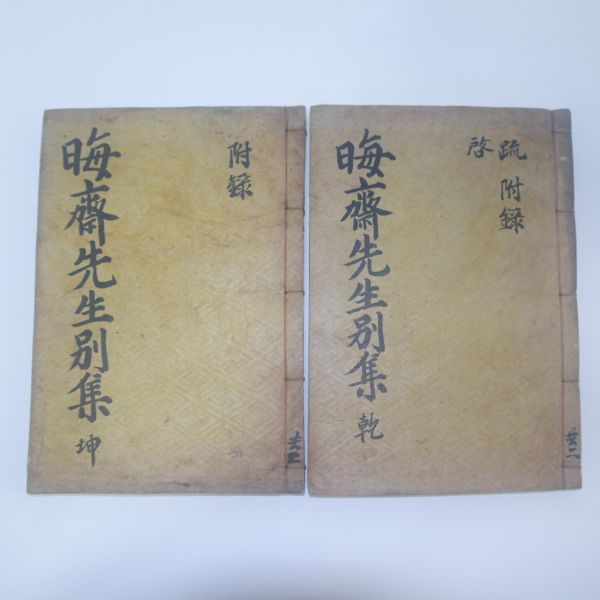 疏 附錄
啓
晦齋先生別集 乾
共二
附錄
晦齋先生別集 坤
共二